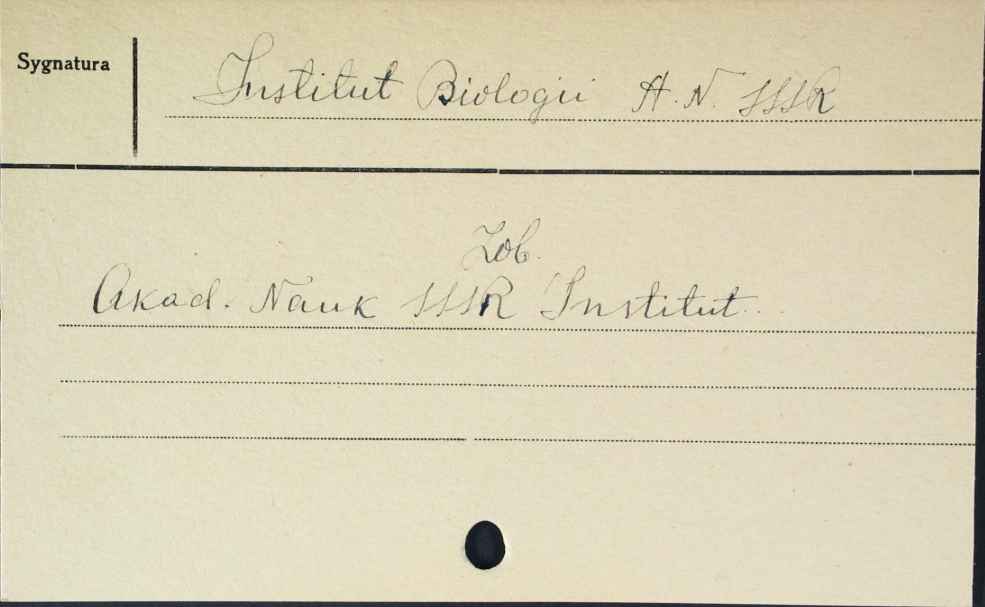 Sygnatura
Institut Biologii A. N. SSSR
Zob.
Akad. Nauk SSSR Institut..